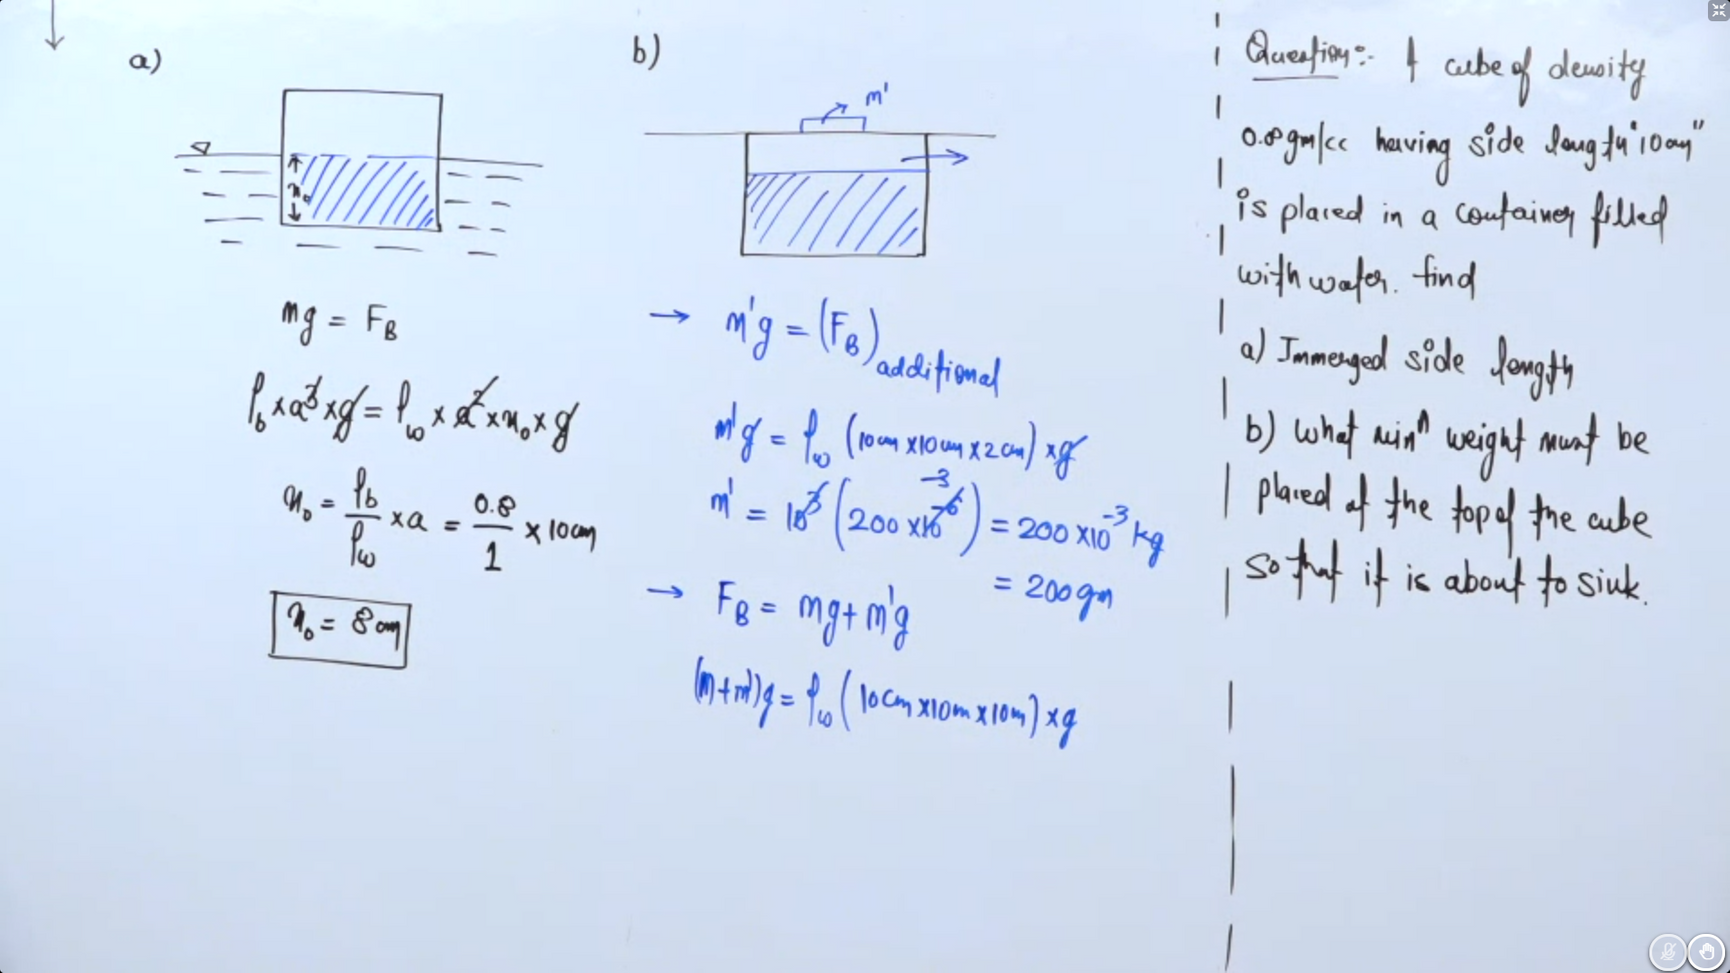 a)
x₀
mg = F_B
ρ_b × a³ × g = ρ_w × a² × x₀ × g
x₀ = ρ_b/ρ_w × a = 0.8/1 × 10cm
x₀ = 8cm
b)
m'
→ m'g = (F_B)additional
m'g = ρ_w (10cm×10cm×2cm) × g
m' = 10³ (200 ×10⁻⁶) = 200 ×10⁻³ kg
-3
= 200gm
→ F_B = mg + m'g
(m+m')g = ρ_w (10cm×10m×10m) × g
Question:- A cube of density
0.8gm/cc having side length "10cm"
is placed in a container filled
with water. find
a) Immerged side length
b) What minᵐ weight must be
placed at the top of the cube
so that it is about to sink.